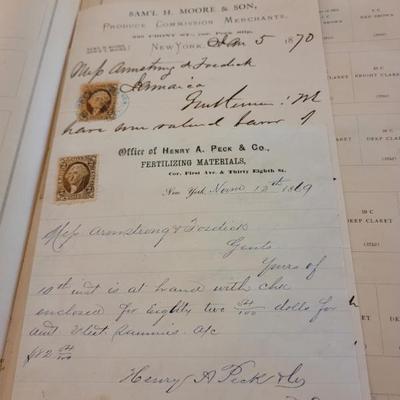 SAM'L H. MOORE & SON,
PRODUCE COMMISSION MERCHANTS,
NEW YORK, Jan 5 1870
Messrs Armstrong & Fosdick
Jamaica
Gentlemen: 
have your valued favor of
Office of HENRY A. PECK & CO.,
FERTILIZING MATERIALS,
Cor. First Ave. & Thirty Eighth St.
New York Novm 12th 1869
Messrs Armstrong & Fosdick
Gents
Yours of
10th inst is at hand with chk
enclosed for Eighty two 54/100 dolls for
amt Vleet a/c
$82 54/100
Henry A Peck & Co
DEEP CLARET
BRIGHT CLARET
DEEP CLARET
DEEP CLARET